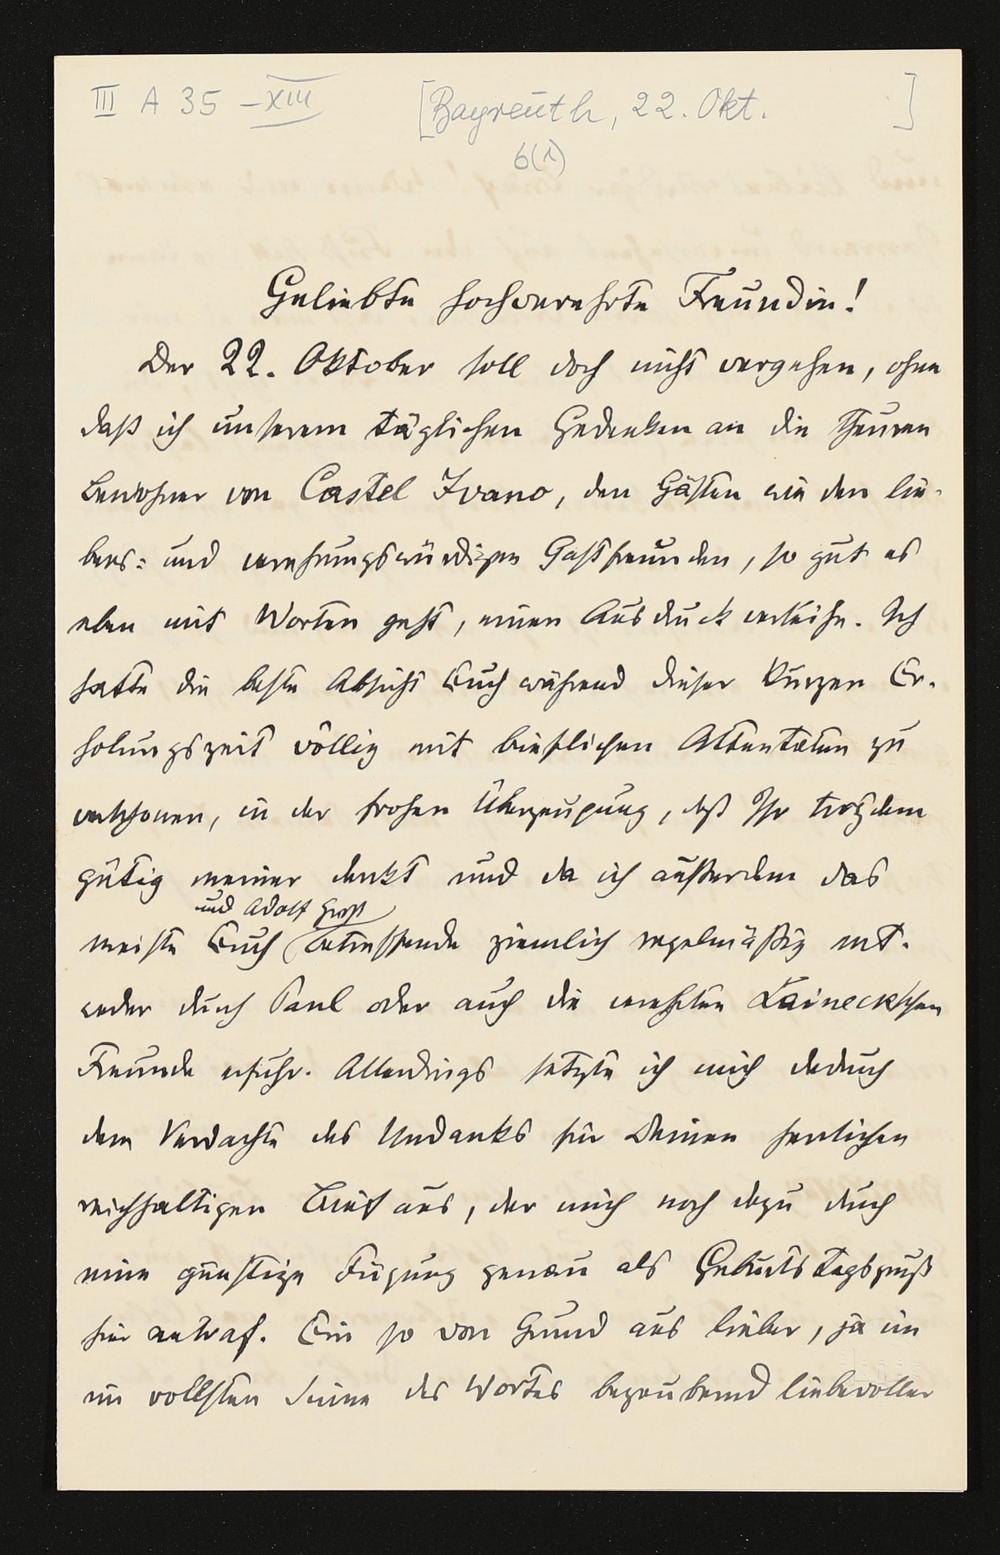 III A 35 – XIII [Bayreuth, 22. Okt. ]
6(1)
Geliebte hochverehrte Freundin!
Der 22. Oktober soll doch nicht vergehen, ohne
daß ich unserem täglichen Gedenken an die theuren
Bewohner von Castel Ivano, den Gästen wie den lie-
bens- und verehrungswürdigen Gastfreunden, so gut es
eben mit Worten geht, einen Ausdruck verleihe. Ich
hatte die beste Absicht Euch während dieser kurzen Er-
holungszeit völlig mit brieflichen Attentaten zu
verschonen, in der frohen Überzeugung, daß Ihr trotzdem
gütig meiner denkt und da ich außerdem das
und Adolf Groß
meiste Euch betreffende ziemlich regelmäßig ent-
weder durch Paul oder auch die verehrten Laineck'schen
Freunde erfuhr. Allerdings setzte ich mich dadurch
dem Verdachte des Undanks für Deinen herrlichen
reichhaltigen Brief aus, der mich noch dazu durch
eine günstige Fügung genau als Geburtstagsgruß
hier antraf. Ein so von Grund aus lieber, ja im
im vollsten Sinne des Wortes bezaubernd liebevoller